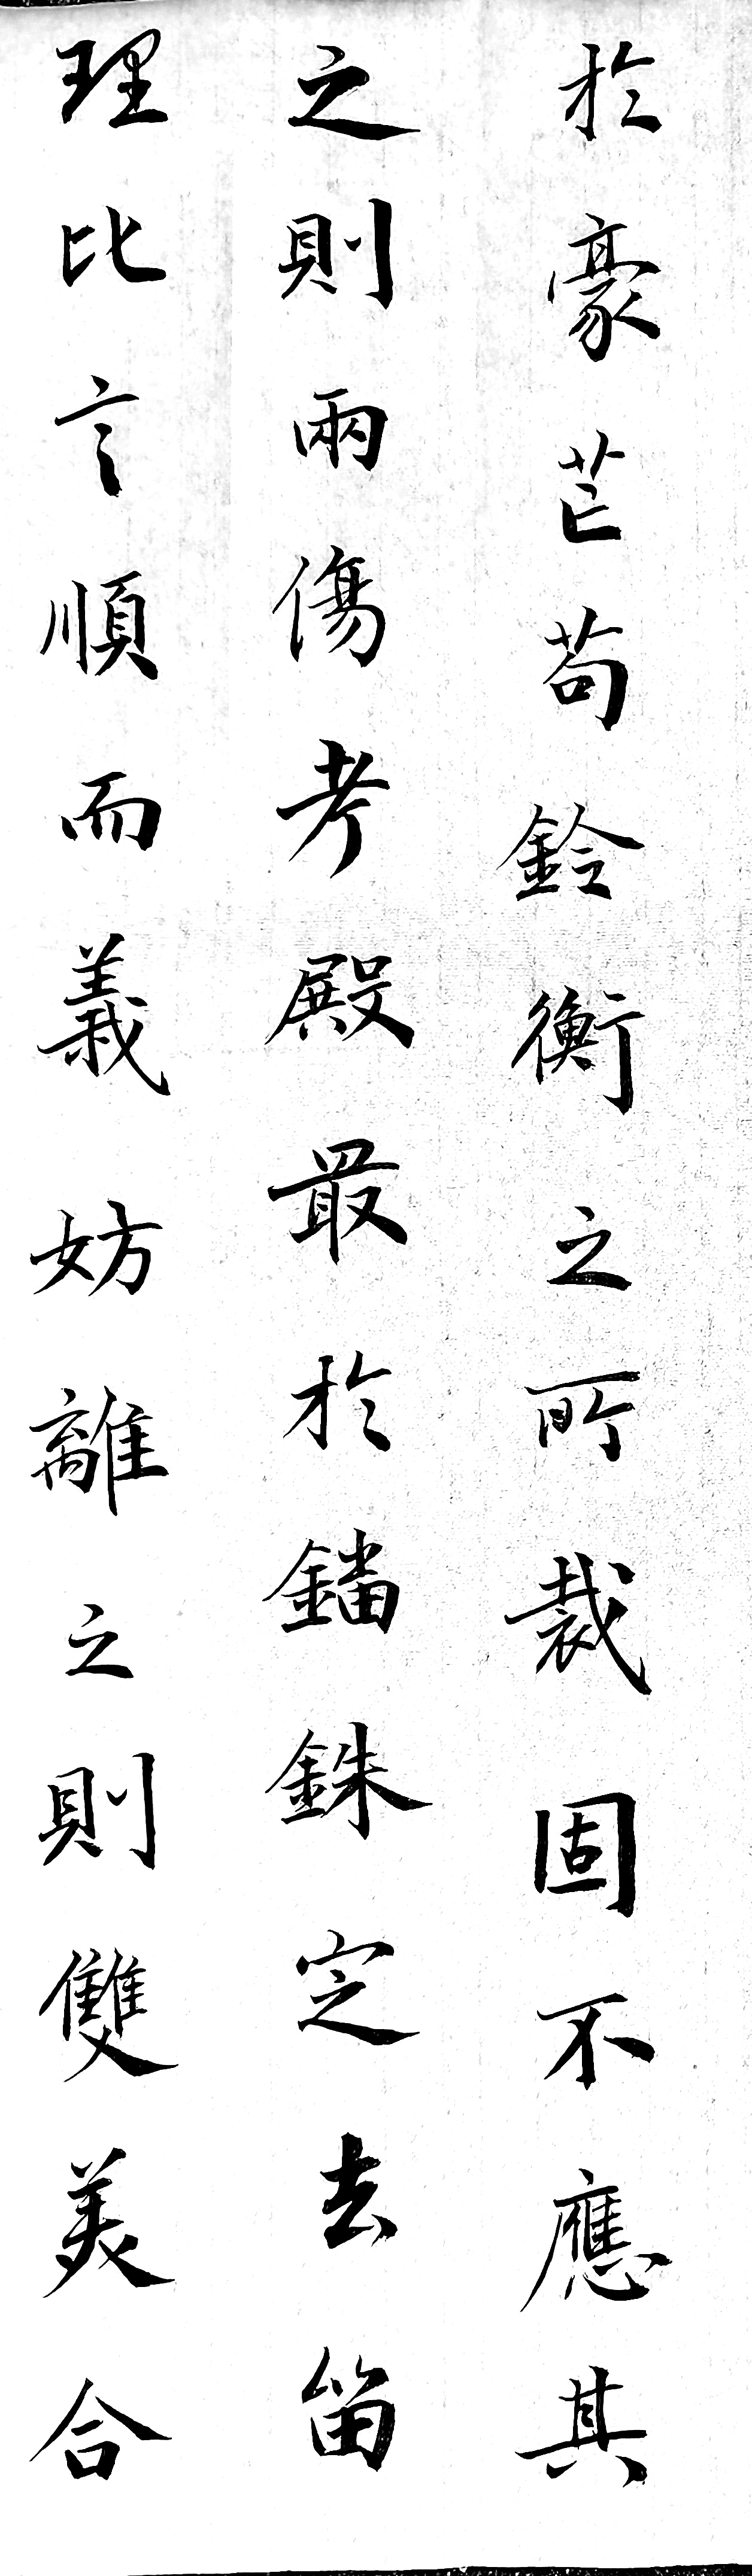 理比言順而義妨離之則雙美合
之則兩傷考殿最於錙銖定去留
於豪芒苟銓衡之所裁固不應其